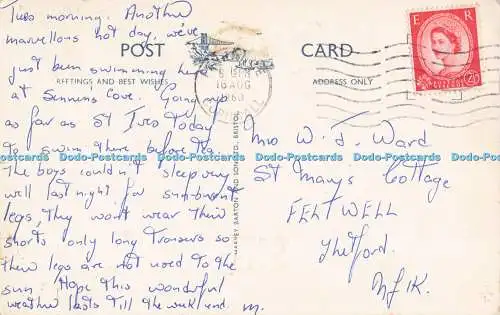 Tues morning. Another
marvellous hot day, we've
just been swimming here
at Sennens Cove. Going up
as far as St Ives today
to swim there before tea.
The boys couldn't sleep very
well last night for sun-burnt
legs, they wont wear their
shorts only long trousers so
their legs are not used to the
sun. Hope this wonderful
weather lasts till the week end. M.
POST CARD
GREETINGS AND BEST WISHES
ADDRESS ONLY
16 AUG
1960
HARVEY BARTON AND SON LTD., BRISTOL
E R
2½
Mrs W. J. Ward
St Mary's Cottage
FELTWELL
Thetford.
NFLK.
Dodo-Postcards Dodo-Postcards Dodo-Postcards Dodo-Postcards Dodo-Postcards Dodo-Postcards